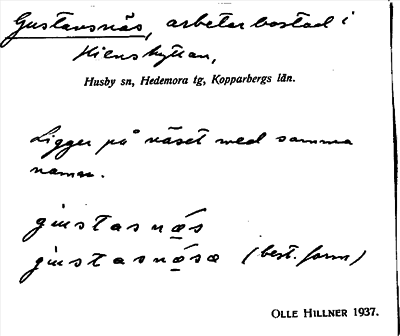 Gustavsnäs, arbetarbostad i
Hienshyttan,
Husby sn, Hedemora tg, Kopparbergs län.
Ligger på näset med samma
namn.
gustasnäs
gustasnäsa (best. form)
OLLE HILLNER 1937.